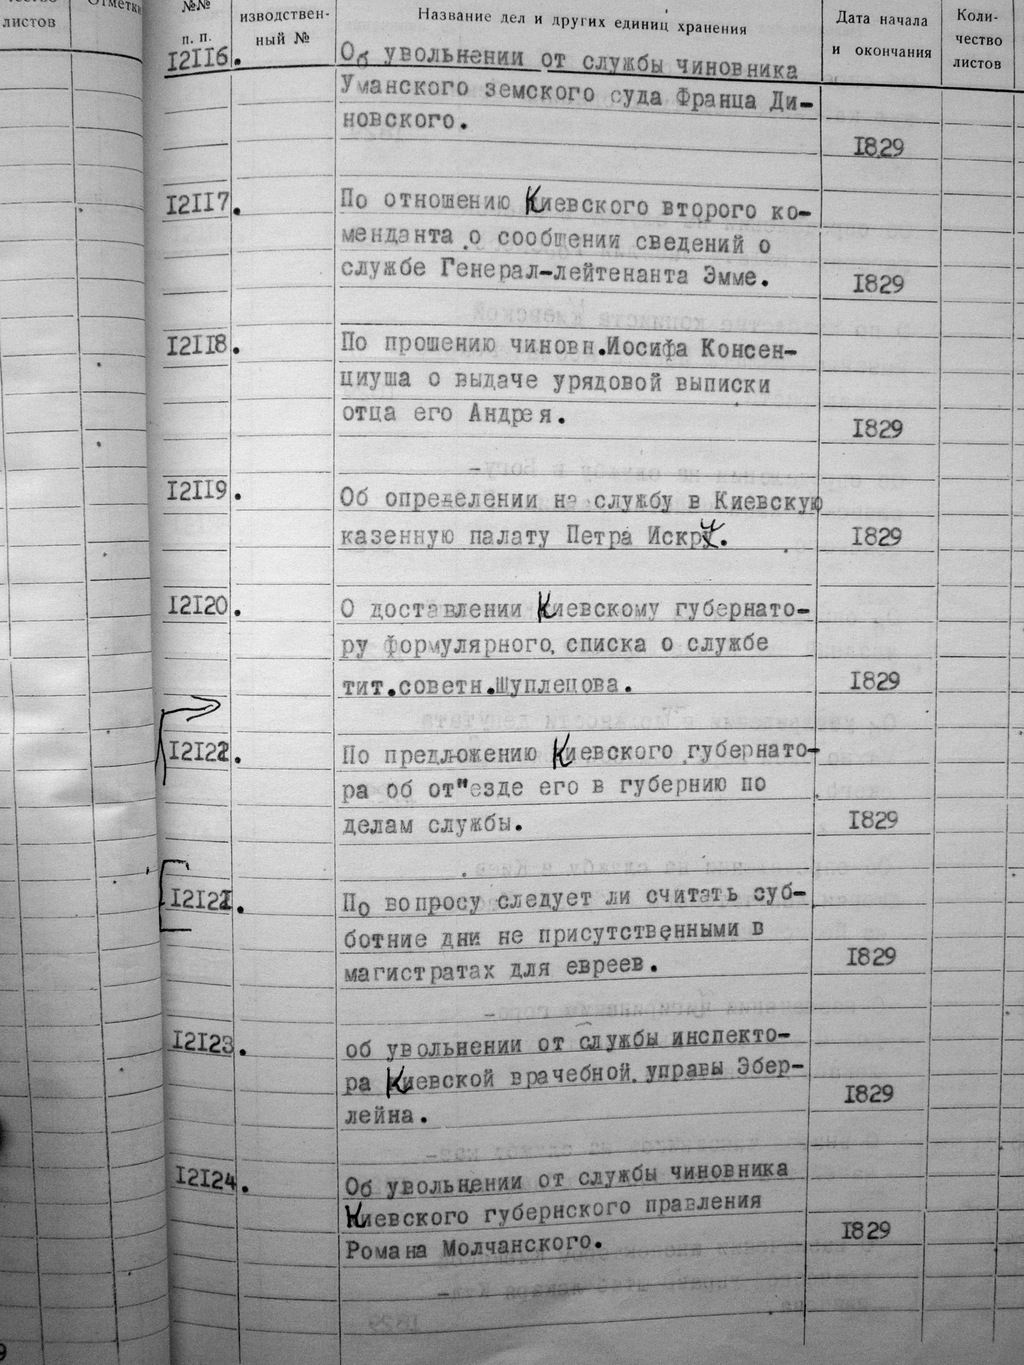 листов
Отметки
№№
п. п.
изводствен-
ный №
Название дел и других единиц хранения
Дата начала
и окончания
Коли-
чество
листов
12116. Об увольнении от службы чиновника
Уманского земского суда Франца Ди-
новского.
1829
12117. По отношению Киевского второго ко-
менданта о сообщении сведений о
службе Генерал-лейтенанта Эмме.
1829
12118. По прошению чиновн.Иосифа Консен-
циуша о выдаче урядовой выписки
отца его Андрея.
1829
12119. Об определении на службу в Киевскую
казенную палату Петра Искру.
1829
12120. О доставлении Киевскому губернато-
ру формулярного списка о службе
тит.советн.Шуплецова.
1829
12122. По предложению Киевского губернато-
ра об от"езде его в губернию по
делам службы.
1829
12121. По вопросу следует ли считать суб-
ботние дни не присутственными в
магистратах для евреев.
1829
12123. об увольнении от службы инспекто-
ра Киевской врачебной управы Эбер-
лейна.
1829
12124. Об увольнении от службы чиновника
Киевского губернского правления
Романа Молчанского.
1829